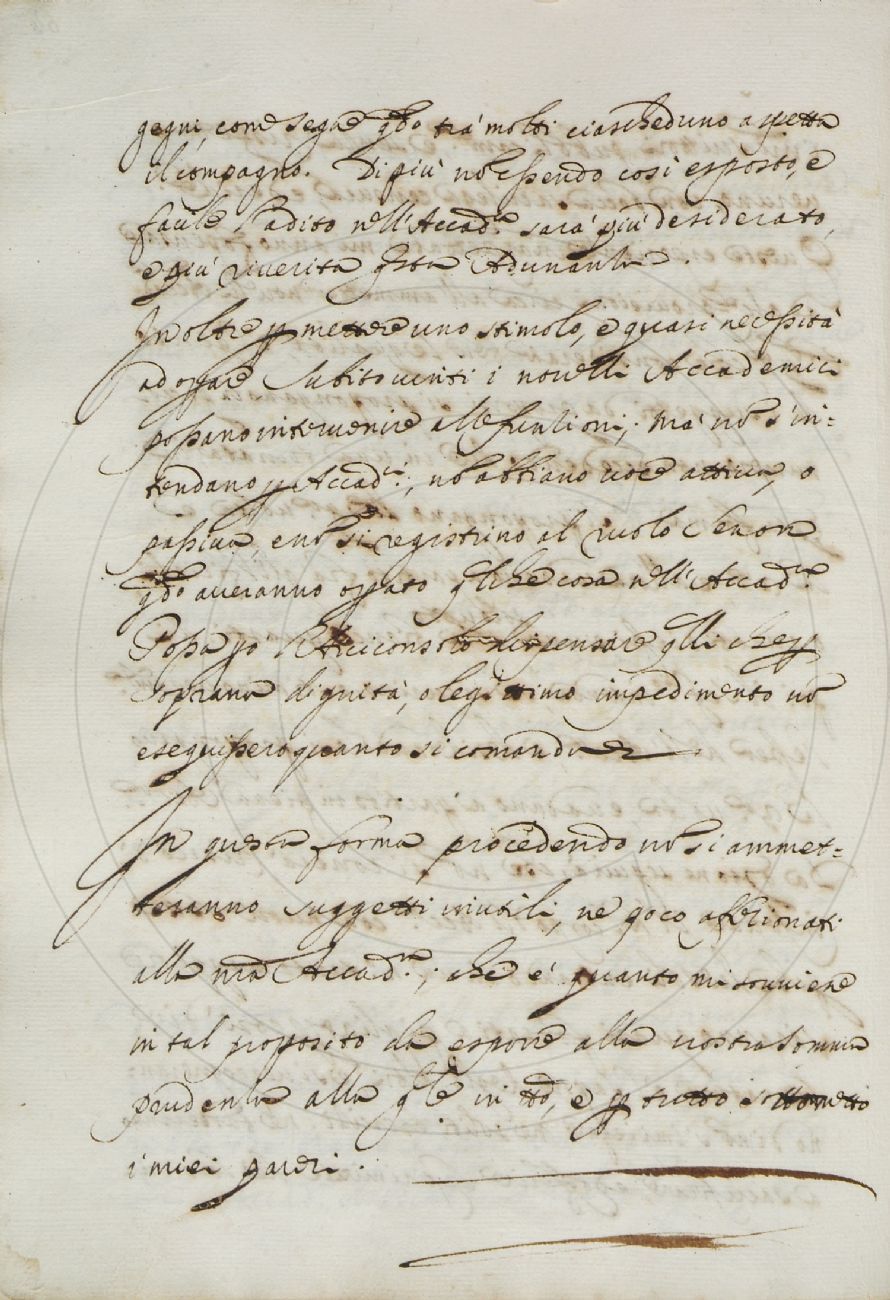 gegni, come segue qdo trà molti ciascheduno aspetta
il compagno. Di più nō essendo così esposto, e
facile l'adito nell'Accad.ª sarà più desiderato,
e più riverita qsta Adunanza.
In oltre p mettere uno stimolo, e quasi necessità
ad oprare subito venti i novelli Accademici
possano intervenire alle funtioni; mà nō s'in=
tendano p Accad.ci, nō abbiano voce attiva, o
passiva, e nō si registrino al ruolo se non
qdo averanno oprato qlche cosa nell'Accad.ª
Possa pò l'Arciconsolo dispensare qlli che p
soprana dignità, o legittimo impedimento nō
eseguissero quanto si comanda.
In questa forma procedendo nō si ammet=
teranno suggetti inutili, ne poco affezionati
alla nrā Accad.ª; che è quanto mi sovviene
in tal proposito da esporre alla vostra somma
prudenza alla qle in ttō, e p tutto sottometto
i miei pareri.